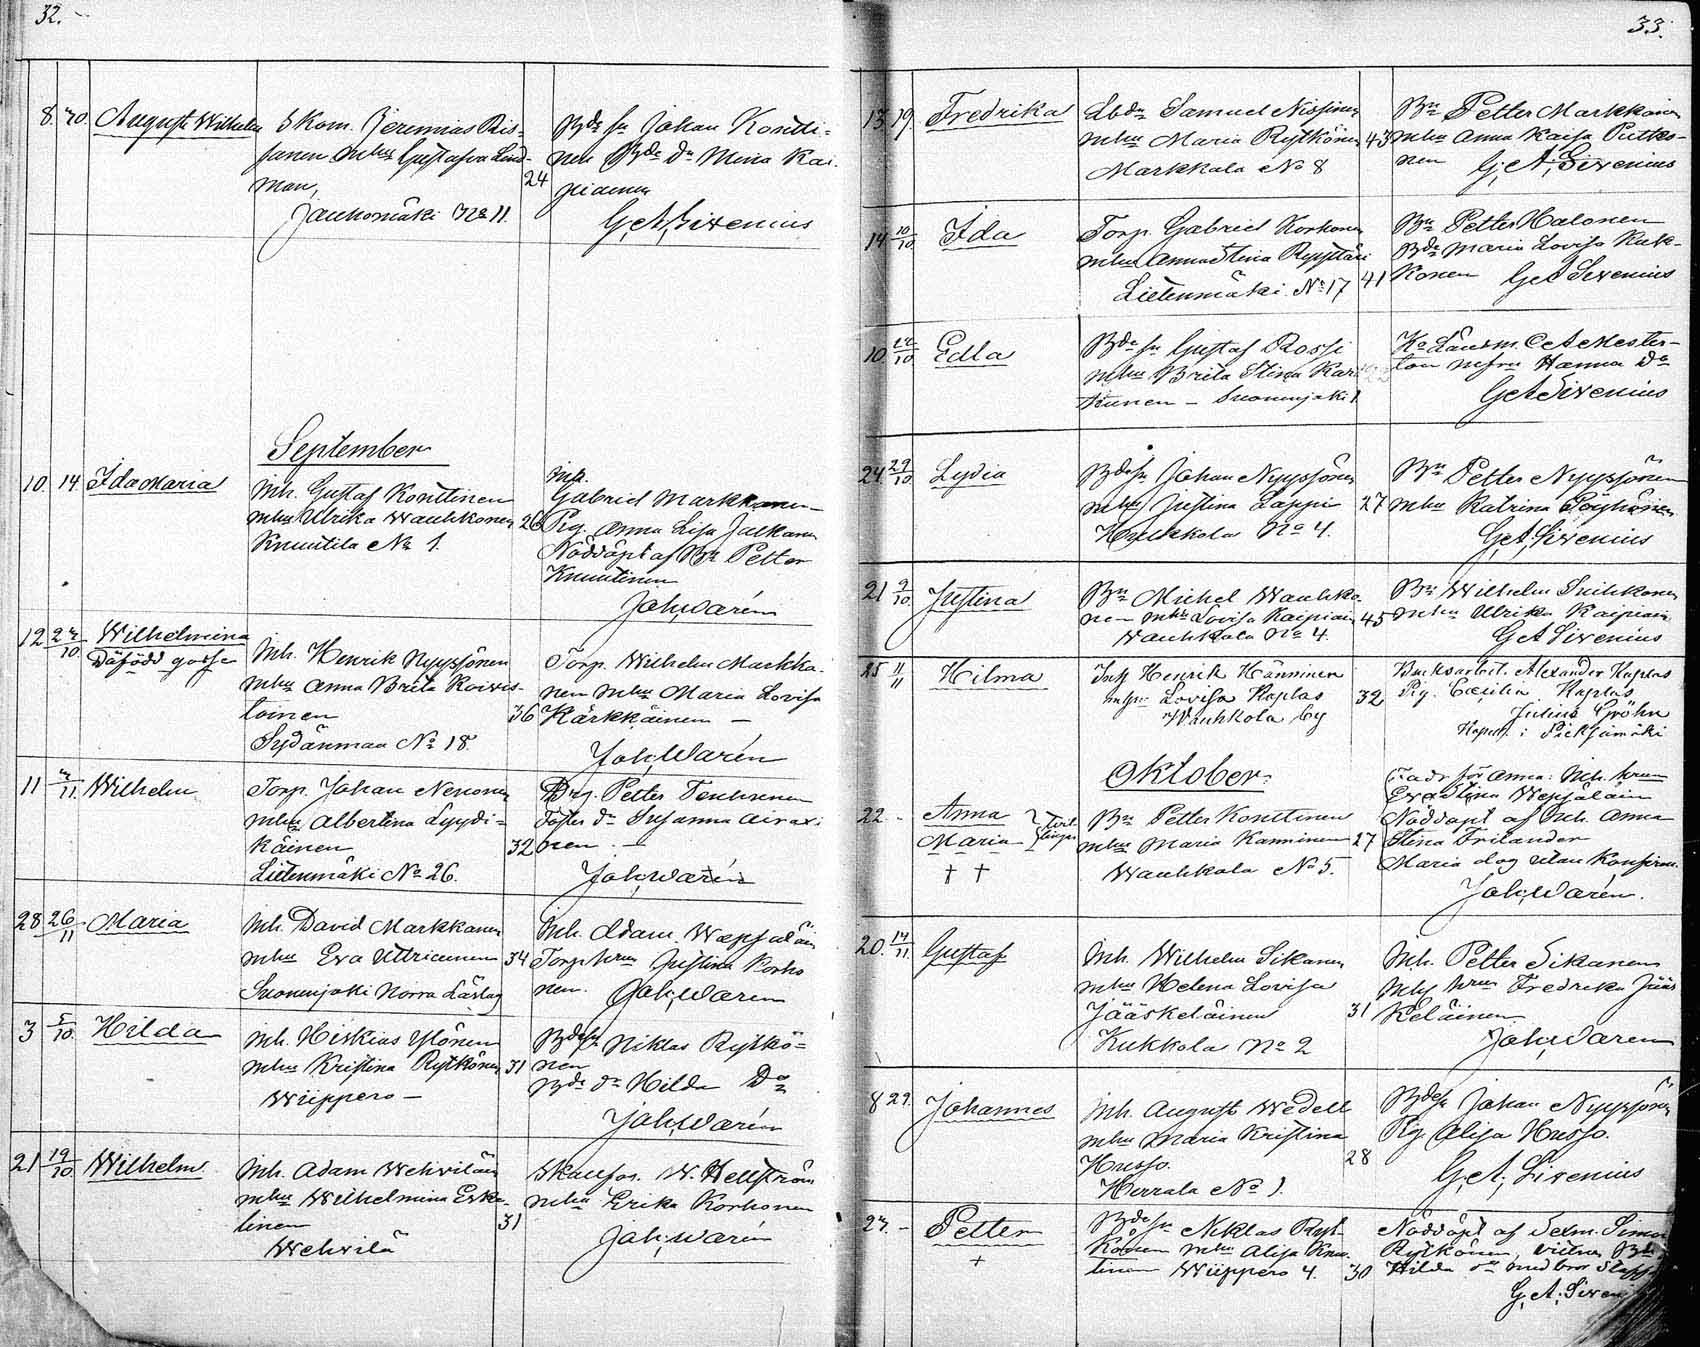 32.
8. 20. August Wilhelm Skom. Jeremias Ris-
sanen mhu Gustafva Lind-
man,
Jauhomäki No 11.
24
Bde sn Johan Kontti-
nen Bde Dr Mina Kai-
piainen
G.A. Sirenius
September
10. 14. Ida Maria
Inh. Gustaf Konttinen
mhu Ulrika Wauhkonen 26
Knuutila No 1.
Inh.
Gabriel Markkanen
Pig. Anna Lisa Jalkanen
Nöddöpt af Bn Petter
Knuutinen
Joh. Warén
12 27/10. Wilhelmina
Däfödd gosse
Inh. Henrik Nyyssönen
mhu Anna Brita Koivis-
toinen
Sydänmaa No 18.
36
Torp. Wilhelm Markka-
nen mhu Maria Lovisa
Kärkkäinen —
Joh. Warén
11 Wilhelm
Torp. Johan Nenonen
mhu Albertina Lyydi-
käinen
Lietenmäki No 26.
32
Drg. Petter Tenhunen
Foster dr Susanna Airaxi-
nen —
Joh. Warén
28 26/11 Maria
Inh. David Markkanen
mhu Eva Uttricunen 34
Suonenjoki Norra Lästag
Inh. Adam Wepsäläin
Torp. hru Justina Korho
nen.
Joh. Warén
3 5/10. Hilda
Inh. Hiskias Ylönen
mhu Kristina Rytkönen 31
Wiippero —
Bdesn Niklas Rytkö-
nen
Bde dr Hilda Do
Joh. Warén
21 19/10. Wilhelm
Inh. Adam Wehviläin
mhu Wilhelmina Eske-
linen
31
Wehvilä
W. Hellström
mhu Erika Korhonen
Joh. Warén
33.
13. 19. Fredrika
Lbdn Samuel Nissinen
mhu Maria Rytkönen 43
Markkala No 8
Bn Petter Markkanen
mhu Anna Kaisa Putko-
nen
G. A. Sirenius
14 10/10. Ida
Torp. Gabriel Korhonen
mhu Anna Stina Ryyttäri
Lietenmäki No 17 41
Bn Petter Halonen
Bde Maria Lovisa Kuk-
konen G A Sirenius
10. 12/10. Edla
Bde sn Gustaf Rossi
mhu Brita Stina Kar
kunen — Suonenjoki 1
Ko Länsm. C A Mester-
ton mfru Hanna Do
G A Sirenius
24 29/10. Lydia
Bdesn Johan Nyyssönen
mhu Justina Lappi 27
No 4.
Bn Petter Nyyssönen
mhu Katrina Pöyhönen
G. A. Sirenius
21 9/10. Justina
Bn Michel Wauhko
nen mhu Lovisa Kaipiain 45
Wauhkala No 4.
Bn Wilhelm Suihkonen
mhu Ulrika Kaipiain
G A Sirenius
25 11/11 Hilma
Inh Henrik Hänninen
mhu Lovisa Kaplas 32
Wauhkola by
Bruksarbet. Alexander Kaplas
Pig. Cæcilia Kaplas
Julius Gröhn
Kapell. i Pieksämäki
Oktober.
22 - Anna
Maria
Tvil-
lingar
† †
Bn Petter Konttinen
mhu Maria Kanninen 27
Wauhkola No 5.
Fadr för Anna: Inh. hrun
Eva Stina Wepsäläin
Nöddöpt af Inh. Anna
Stina Frilander
Maria dog utan Konfirm.
Joh. Warén.
20. 14/11. Gustaf
Inh. Wilhelm Sikanen
mhu Helena Lovisa
Jääskeläinen 31
Kukkola No 2
Inh. Petter Sikanen
Inhs hrun Fredrika Jääs
keläinen
Joh. Warén
8 29. Johannes
Inh. August Wedell
mhu Maria Kristina
Husso. 28
Herrala No 1.
Bdesn Johan Nyyssönen
Pig Alisa Husso.
G. A. Sirenius
27. - Petter
+
Bdesn Niklas Ryt-
könen mhu Alisa Knu-
tinen Wiippero 4. 30
Nöddöpt af Selm. Simon
Rytkönen, vittnen Bde
Hilda
G. A. Siren